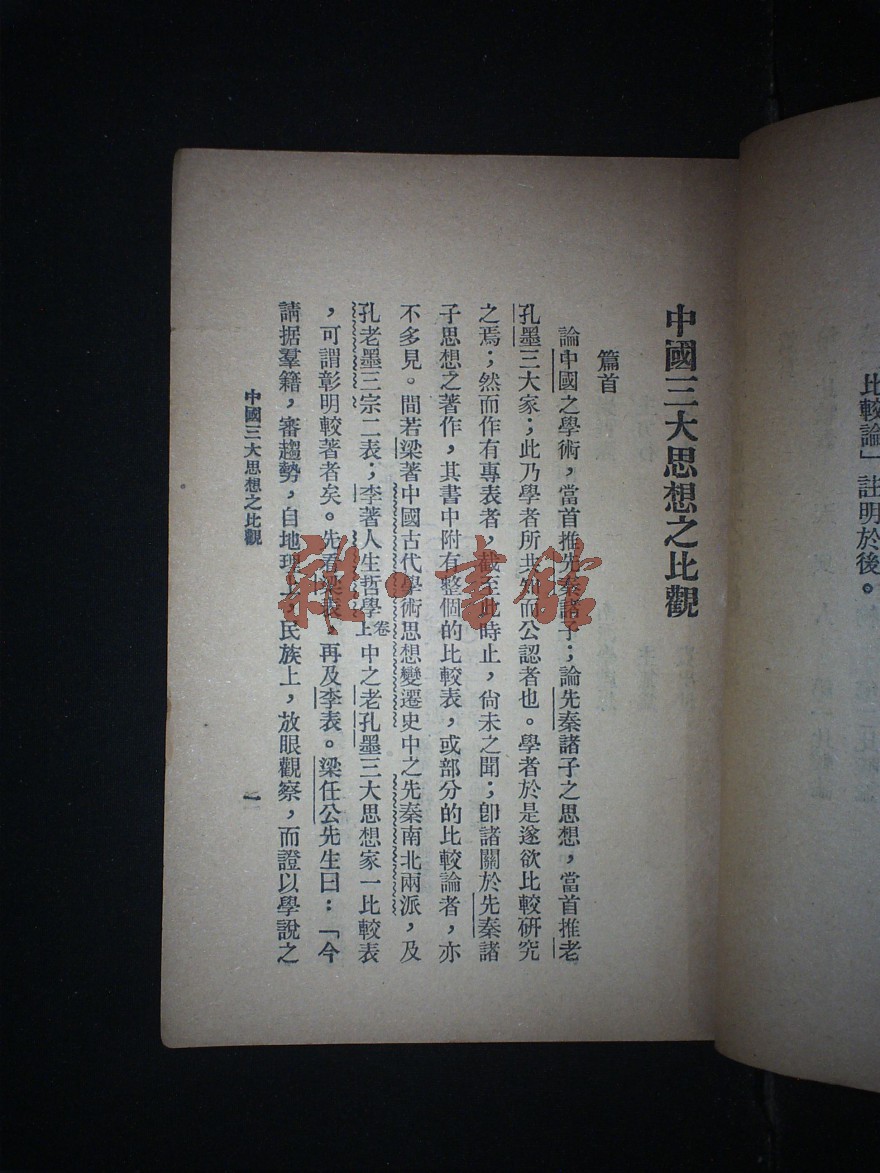 比較論」註明於後。
中國三大思想之比觀
篇首
論中國之學術，當首推先秦諸子；論先秦諸子之思想，當首推老
孔墨三大家；此乃學者所共知而公認者也。學者於是遂欲比較研究
之焉；然而作有專表者，截至此時止，尙未之聞；卽諸關於先秦諸
子思想之著作，其書中附有整個的比較表，或部分的比較論者，亦
不多見。間若梁著中國古代學術思想變遷史中之先秦南北兩派，及
孔老墨三宗二表；李著人生哲學上卷中之老孔墨三大思想家一比較表
，可謂彰明較著者矣。先看梁表，再及李表。梁任公先生曰：「今
請据羣籍，審趨勢，自地理上，民族上，放眼觀察，而證以學說之
中國三大思想之比觀
一
雜·書館